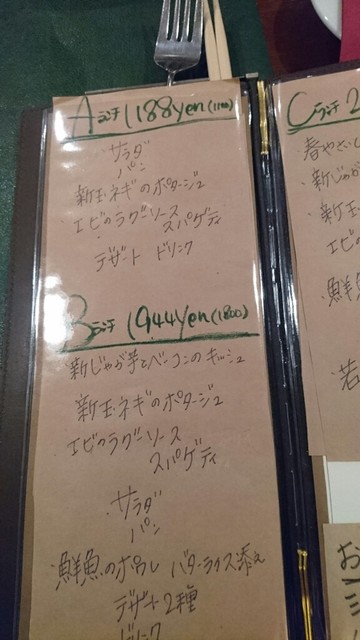 Aランチ 1188yen(1100)
サラダ
パン
新玉ネギのポタージュ
エビのラグーソース
スパゲティ
デザート ドリンク
Bランチ 1944yen(1800)
新じゃが芋とベーコンのキッシュ
新玉ネギのポタージュ
エビのラグーソース
スパゲティ
サラダ
パン
鮮魚のポワレ バターライス添え
デザート2種
ドリンク
Cランチ 2
春やさい
新じゃが
新玉
エビ
鮮魚
若
お
ミ